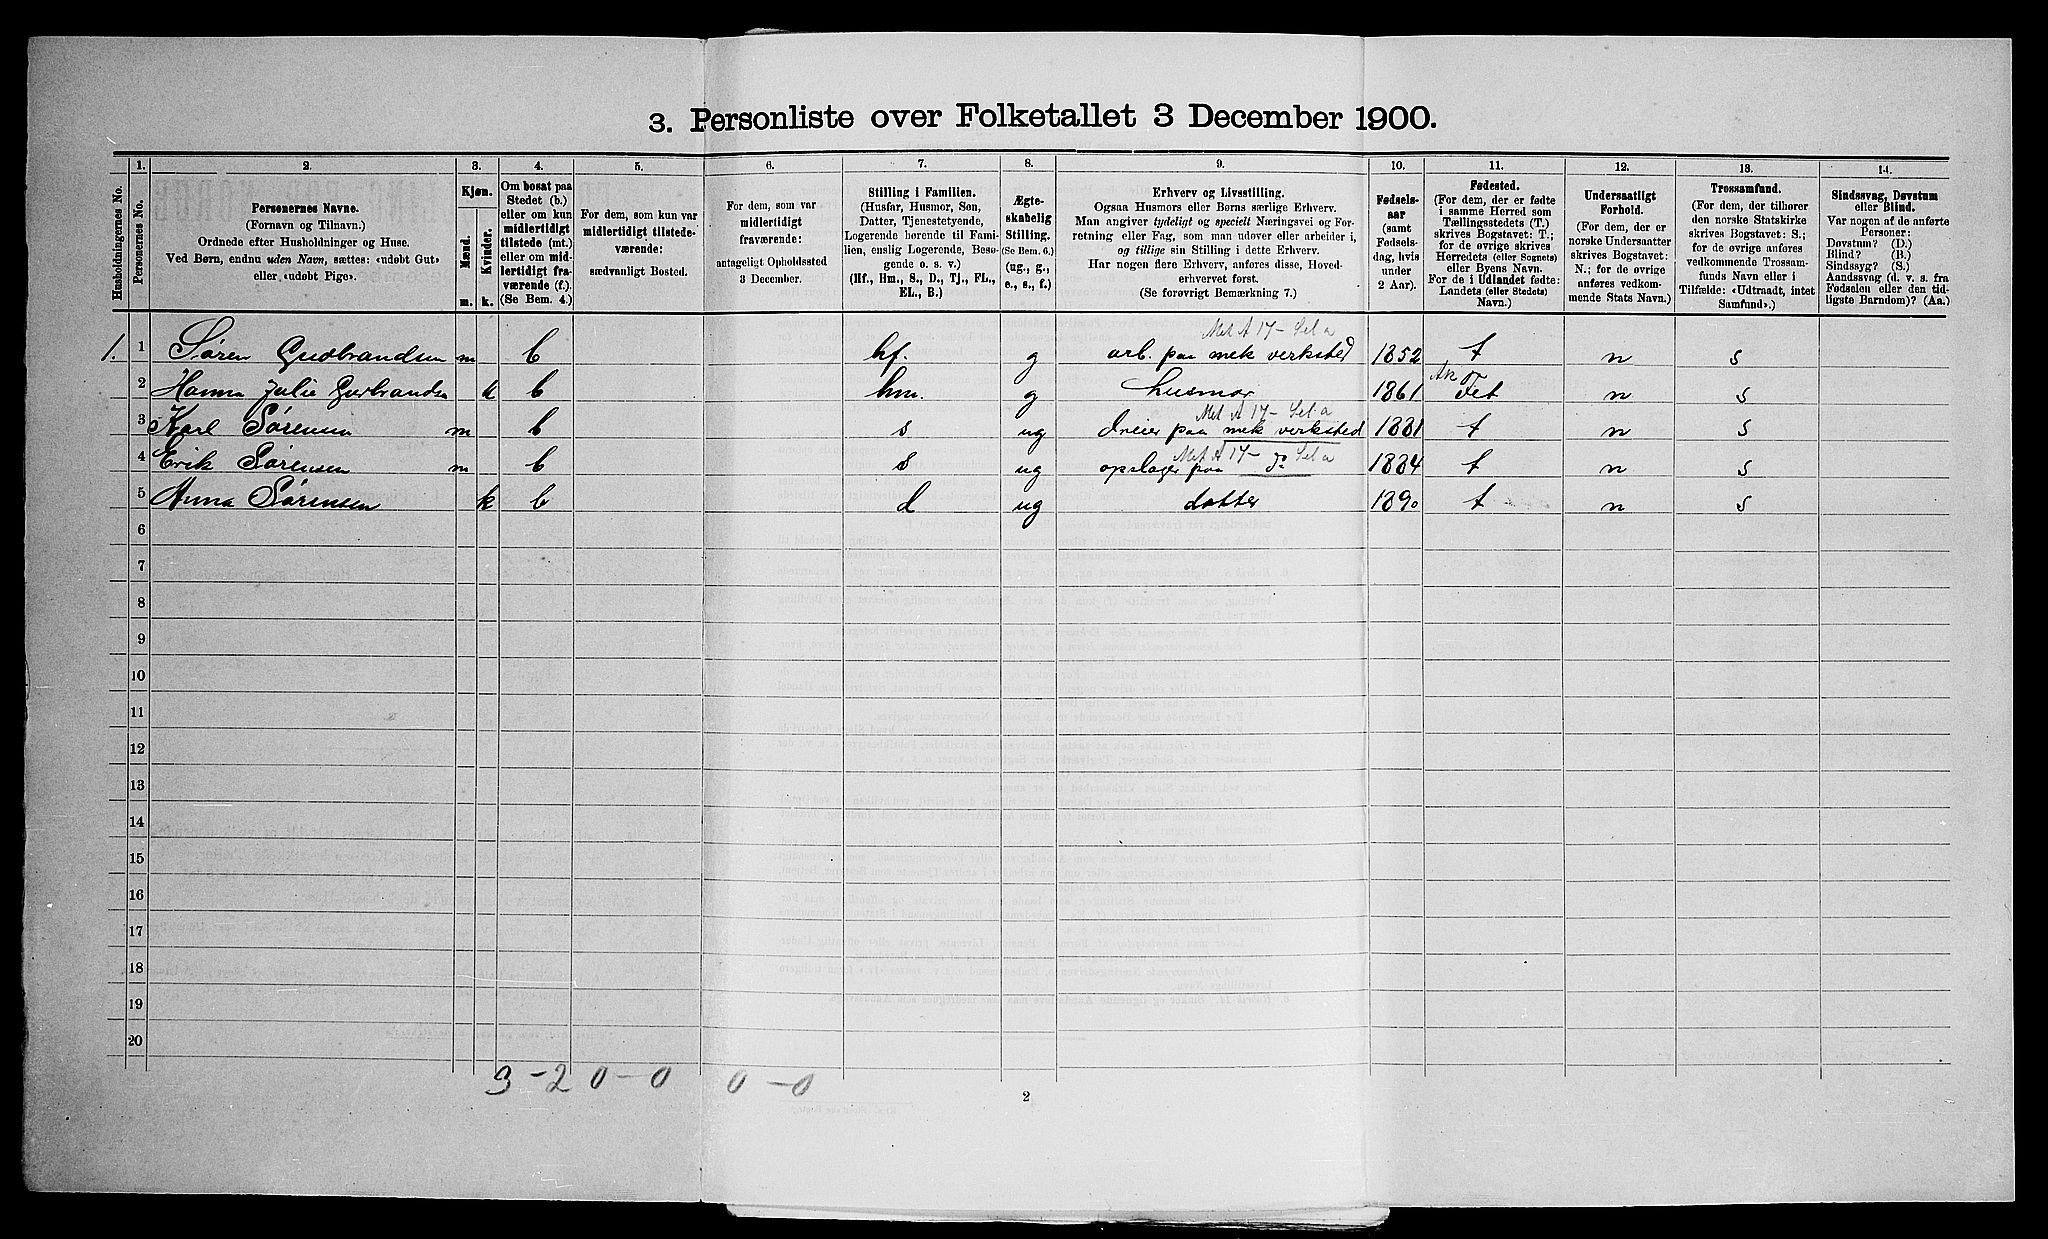 3. Personliste over Folketallet 3 December 1900.
Husholdningernes No.
1.
Personernes No.
2.
Personernes Navne.
(Fornavn og Tilnavn.)
Ordnede efter Husholdninger og Huse.
Ved Børn, endnu uden Navn, sættes: «udøbt Gut»
eller «udøbt Pige».
3.
Kjøn.
Mænd.
Kvinder.
m.
k.
4.
Om bosat paa
Stedet (b.)
eller om kun
midlertidigt
tilstede (mt.)
eller om mid-
lertidigt fra-
værende (f.).
(Se Bem. 4.)
5.
For dem, som kun var
midlertidigt tilstede-
værende:
sædvanligt Bosted.
6.
For dem, som var
midlertidigt
fraværende:
antageligt Opholdssted
3 December.
7.
Stilling i Familien.
(Husfar, Husmor, Søn,
Datter, Tjenestetyende,
Logerende hørende til Fami-
lien, enslig Logerende, Besø-
gende o. s. v.)
(Hf., Hm., S., D., Tj., FL.,
EL., B.)
8.
Ægte-
skabelig
Stilling.
(Se Bem. 6.)
(ug., g.,
e., s., f.)
9.
Erhverv og Livsstilling.
Ogsaa Husmors eller Børns særlige Erhverv.
Man angiver tydeligt og specielt Næringsvei og For-
retning eller Fag, som man udover eller arbeider i,
og tillige sin Stilling i dette Erhverv.
Har nogen flere Erhverv, anføres disse, Hoved-
erhvervet først.
(Se forøvrigt Bemærkning 7.)
10.
Fødsels-
aar
(samt
Fødsels-
dag, hvis
under
2 Aar).
11.
Fødested.
(For dem, der er fødte
i samme Herred som
Tællingsstedets (T.)
skrives Bogstavet: T.;
for de øvrige skrives
Herredets (eller Sognets)
eller Byens Navn.
For de i Udlandet fødte:
Landets (eller Stedets)
Navn.)
12.
Undersaatligt
Forhold.
(For dem, der er
norske Undersaatter
skrives Bogstavet:
N.; for de øvrige
anføres vedkom-
mende Stats Navn.)
13.
Trossamfund.
(For dem, der tilhører
den norske Statskirke
skrives Bogstavet: S.;
for de øvrige anføres
vedkommende Trossam-
funds Navn eller i
Tilfælde: «Udtraadt, intet
Samfund».)
14.
Sindssvag, Døvstum
eller Blind.
Var nogen af de anførte
Personer:
Døvstum? (D.)
Blind? (B.)
Sindssyg? (S.)
Aandssvag (d. v. s. fra
Fødselen eller den tid-
ligste Barndom)? (Aa.)
Met A 17 - Sel a
1. 1 Søren Gudbrandsen m b hf. g arb. paa mek verksted 1852 t n s
Ak
2 Hanna Julie Gurbrandsen k b hm. g husmor 1861 n s
Met A 17 - Sel a
3 Karl Sørensen m b s ug dreier paa mek verksted 1881 t n s
Met A 17 - Sel a
4 Erik Sørensen m b s ug opslager paa do 1884 t n s
5 Anna Sørensen k b d ug datter 1890 t n s
6
7
8
9
10
11
12
13
14
15
16
17
18
19
20
3 - 2 0 - 0 0 - 0
2